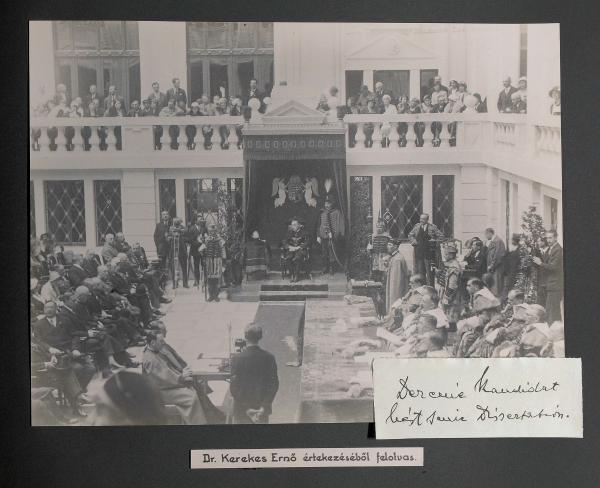 Der eine Kandidat
liest seine Dissertation.
Dr. Kerekes Ernő értekezéséből felolvas.